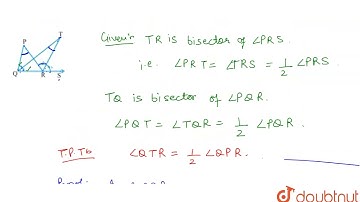 Given:- TR is bisector of ∠PRS.
i.e. ∠PRT = ∠TRS = 1/2 ∠PRS
TQ is bisector of ∠PQR.
∠PQT = ∠TQR = 1/2 ∠PQR
T.P.T:- ∠QTR = 1/2 ∠QPR.
P
T
Q
R
S
doubtnut